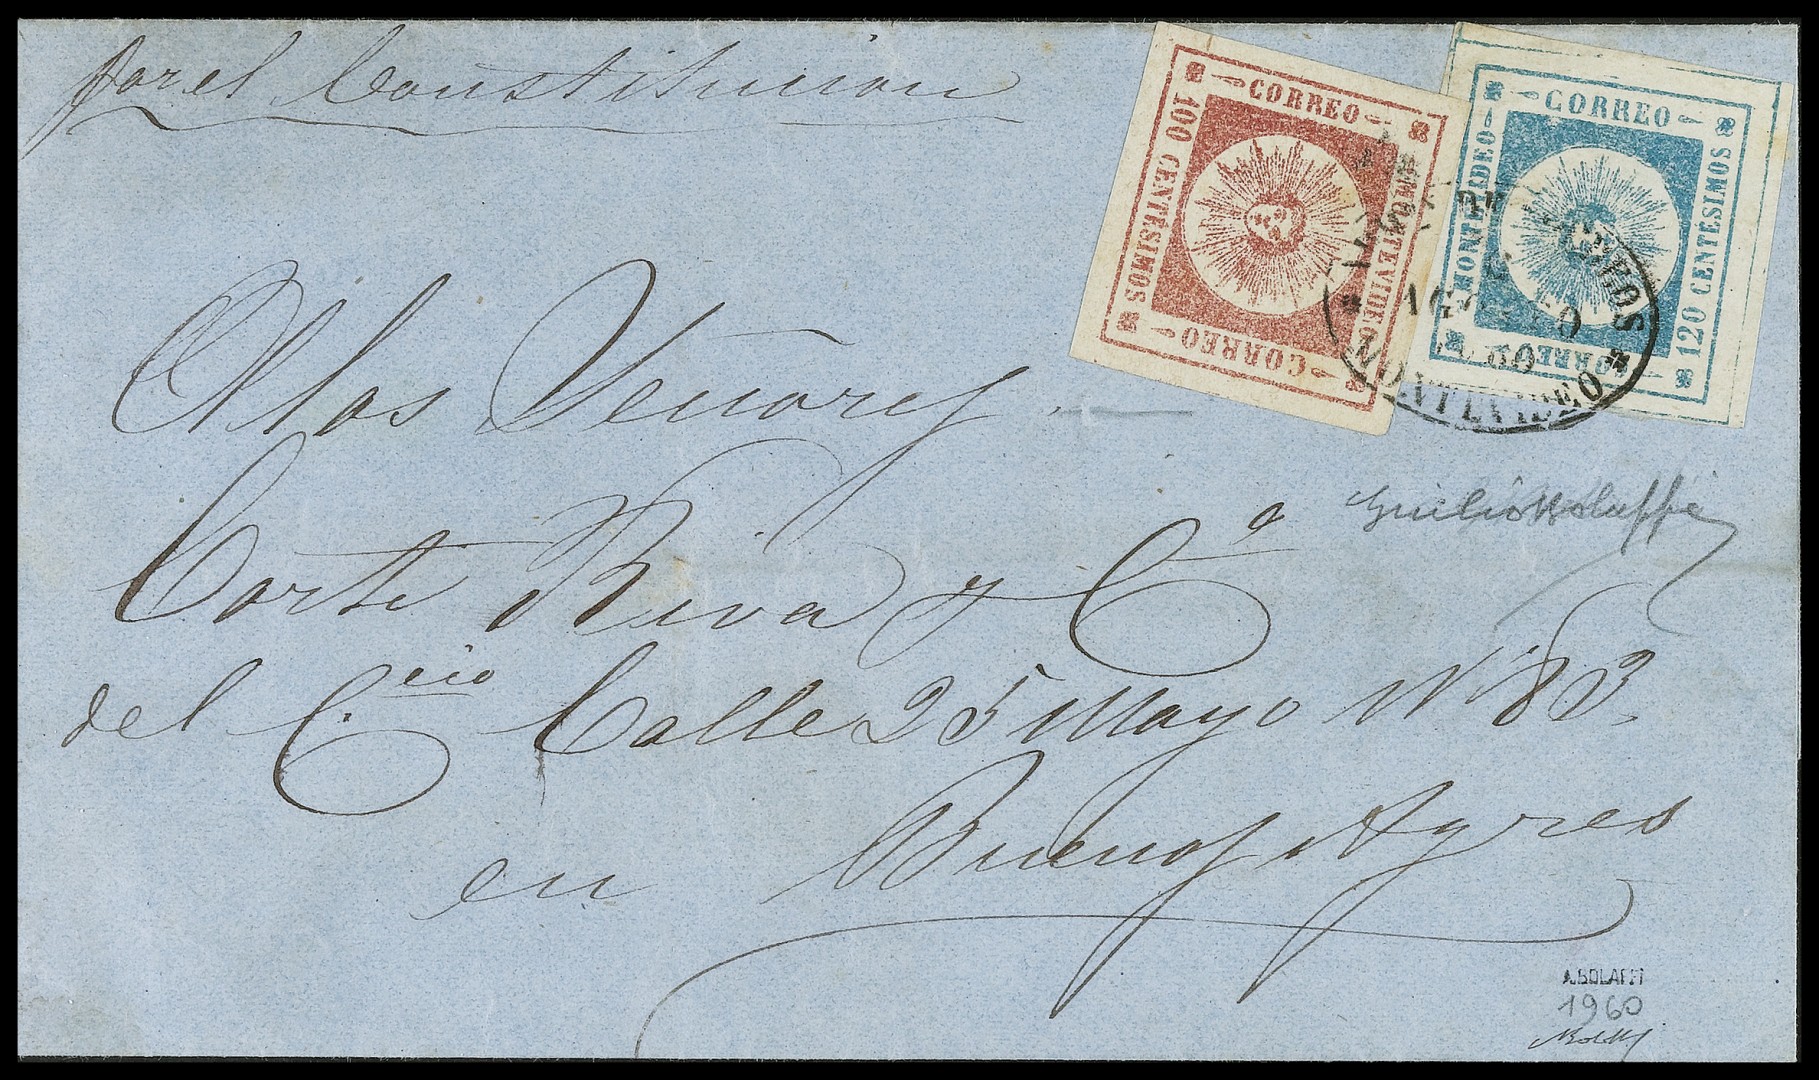 por el Constitucion
CORREO
100 CENTÉSIMOS
MONTEVIDEO
CORREO
CORREO
MONTEVIDEO
120 CENTÉSIMOS
CORREO
AGOSTO
MONTEVIDEO
A los Señores
Corti Riva y Cª
del C.cio Calle 25 Mayo Nº 83
en Buenos Ayres
A.BOLAFFI
1960